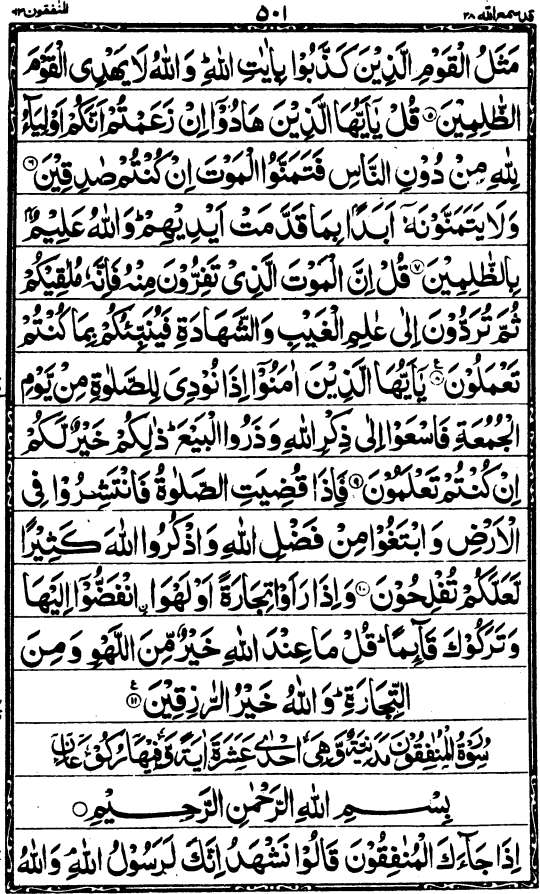 قد سمع الله ٢٨
٥٠١
المنفقون ٦٣
مَثَلُ الْقَوْمِ الَّذِيْنَ كَذَّبُوْا بِاٰيٰتِ اللّٰهِ ؕ وَاللّٰهُ لَا يَهْدِى الْقَوْمَ
الظّٰلِمِيْنَ ۝۵ قُلْ يٰۤاَيُّهَا الَّذِيْنَ هَادُوْۤا اِنْ زَعَمْتُمْ اَنَّكُمْ اَوْلِيَآءُ
لِلّٰهِ مِنْ دُوْنِ النَّاسِ فَتَمَنَّوُا الْمَوْتَ اِنْ كُنْتُمْ صٰدِقِيْنَ ۝۶
وَلَا يَتَمَنَّوْنَهٗۤ اَبَدًۢا بِمَا قَدَّمَتْ اَيْدِيْهِمْ ؕ وَاللّٰهُ عَلِيْمٌۢ
بِالظّٰلِمِيْنَ ۝۷ قُلْ اِنَّ الْمَوْتَ الَّذِىْ تَفِرُّوْنَ مِنْهُ فَاِنَّهٗ مُلٰقِيْكُمْ
ثُمَّ تُرَدُّوْنَ اِلٰى عٰلِمِ الْغَيْبِ وَالشَّهَادَةِ فَيُنَبِّئُكُمْ بِمَا كُنْتُمْ
تَعْمَلُوْنَ ۝۸ ع يٰۤاَيُّهَا الَّذِيْنَ اٰمَنُوْۤا اِذَا نُوْدِىَ لِلصَّلٰوةِ مِنْ يَّوْمِ
الْجُمُعَةِ فَاسْعَوْا اِلٰى ذِكْرِ اللّٰهِ وَذَرُوا الْبَيْعَ ؕ ذٰلِكُمْ خَيْرٌ لَّكُمْ
اِنْ كُنْتُمْ تَعْلَمُوْنَ ۝۹ فَاِذَا قُضِيَتِ الصَّلٰوةُ فَانْتَشِرُوْا فِى
الْاَرْضِ وَابْتَغُوْا مِنْ فَضْلِ اللّٰهِ وَاذْكُرُوا اللّٰهَ كَثِيْرًا
لَّعَلَّكُمْ تُفْلِحُوْنَ ۝۱۰ وَاِذَا رَاَوْا تِجَارَةً اَوْ لَهْوَا۟ اِنْفَضُّوْۤا اِلَيْهَا
وَتَرَكُوْكَ قَآئِمًا ؕ قُلْ مَا عِنْدَ اللّٰهِ خَيْرٌ مِّنَ اللَّهْوِ وَمِنَ
التِّجَارَةِ ؕ وَاللّٰهُ خَيْرُ الرّٰزِقِيْنَ ۝۱۱ ع
سُوْرَةُ الْمُنٰفِقُوْنَ مَدَنِيَّةٌ وَّهِىَ اِحْدٰى عَشْرَةَ اٰيَةً وَّفِيْهَا رُكُوْعَانِ
بِسْمِ اللّٰهِ الرَّحْمٰنِ الرَّحِيْمِ ۝
اِذَا جَآءَكَ الْمُنٰفِقُوْنَ قَالُوْا نَشْهَدُ اِنَّكَ لَرَسُوْلُ اللّٰهِ ۘ وَاللّٰهُ